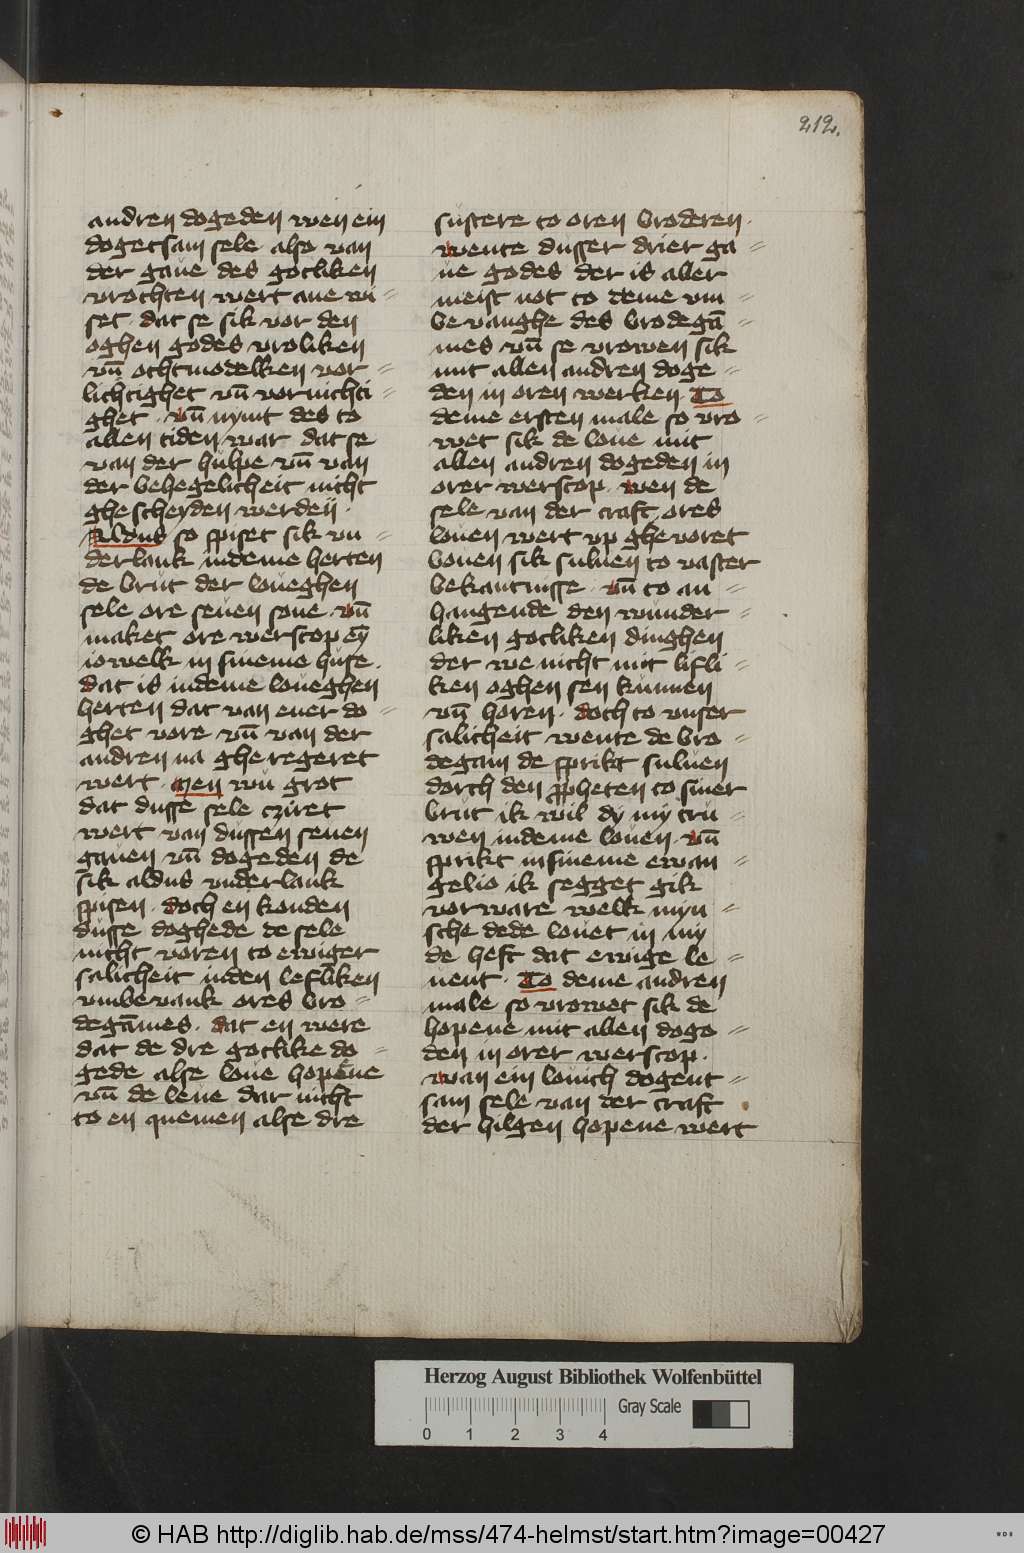 212.
andren dogeden wen ein
dogetsam sele also van
der gaue des gotliken
vrochten wert aue wi=
set · dat se sik vor den
oghen godes vroliken
vn̄ othmodelken vor=
lichtighet vn̄ vornichti=
ghet · vn̄ nymt des to
allen tiden war dat se
van der hulpe vn̄ van
der behegelicheit nicht
ghescheyden werden ·
Aldus so spiset sik vn=
derlank indeme herten
de brut der loueghen
sele ore seuen sone vn̄
maket ore werscop ey̅
iowelk in sineme huse ·
dat is indeme loueghen
herten dat van ener do=
ghet vore vn̄ van der
andren na ghe regeret
wert · Men wu grot
dat dusse sele cziret
wert van dussen seuen
gauen vn̄ dogeden de
sik aldus vnderlank
spisen · doch en konden
dusse doghede de sele
nicht voren to ewiger
salicheit inden lefliken
vmbevank ores bro=
degāmes · dat en were
dat de dre gotlike do=
gede alse loue hopene
vn̄ de leue dar nicht
to en quemen alse dre
sustere to oren broderen ·
wente dusser drier ga=
ue godes der is aller
meist not to deme vm=
be vanghe des brodegā=
mes vn̄ se vrowen sik
mit allen andren doge=
den in oren werken · To
deme ersten male so vro=
wet sik de loue mit
allen andren dogeden in
orer werscop · wen de
sele van der craft ores
louen wert vp ghe voret
bouen sik suluen to vaster
bekantnisse · vn̄ to an=
hangende den wunder=
liken gotliken dinghen
der we nicht mit lifli=
ken oghen sen kunnen
vn̄ horen · doch to vnser
salicheit wente de bro=
degam de sprikt suluen
dorch den ppheten to siner
brut ik wil dy my tru=
wen indeme louen · vn̄
sprikt in sineme ewan=
gelio ik segget gik
vorware welk myn=
sche dede louet in my
de heft dat ewige le=
uent · To deme andren
male so vrowet sik de
hopene mit allen dogo=
den in orer werscop ·
wan ein louich dogent=
sam sele van der craft
der hilgen hopene wert
Herzog August Bibliothek Wolfenbüttel
Gray Scale
0 1 2 3 4
© HAB http://diglib.hab.de/mss/474-helmst/start.htm?image=00427